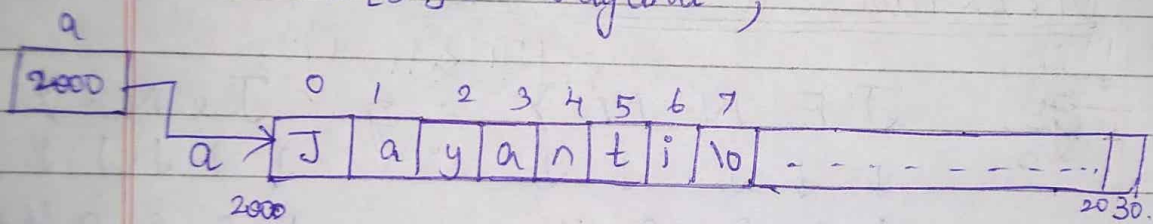 a
2000
0 1 2 3 4 5 6 7
a J a y a n t i \0 - - - - - - - - - ...
2000 2030.